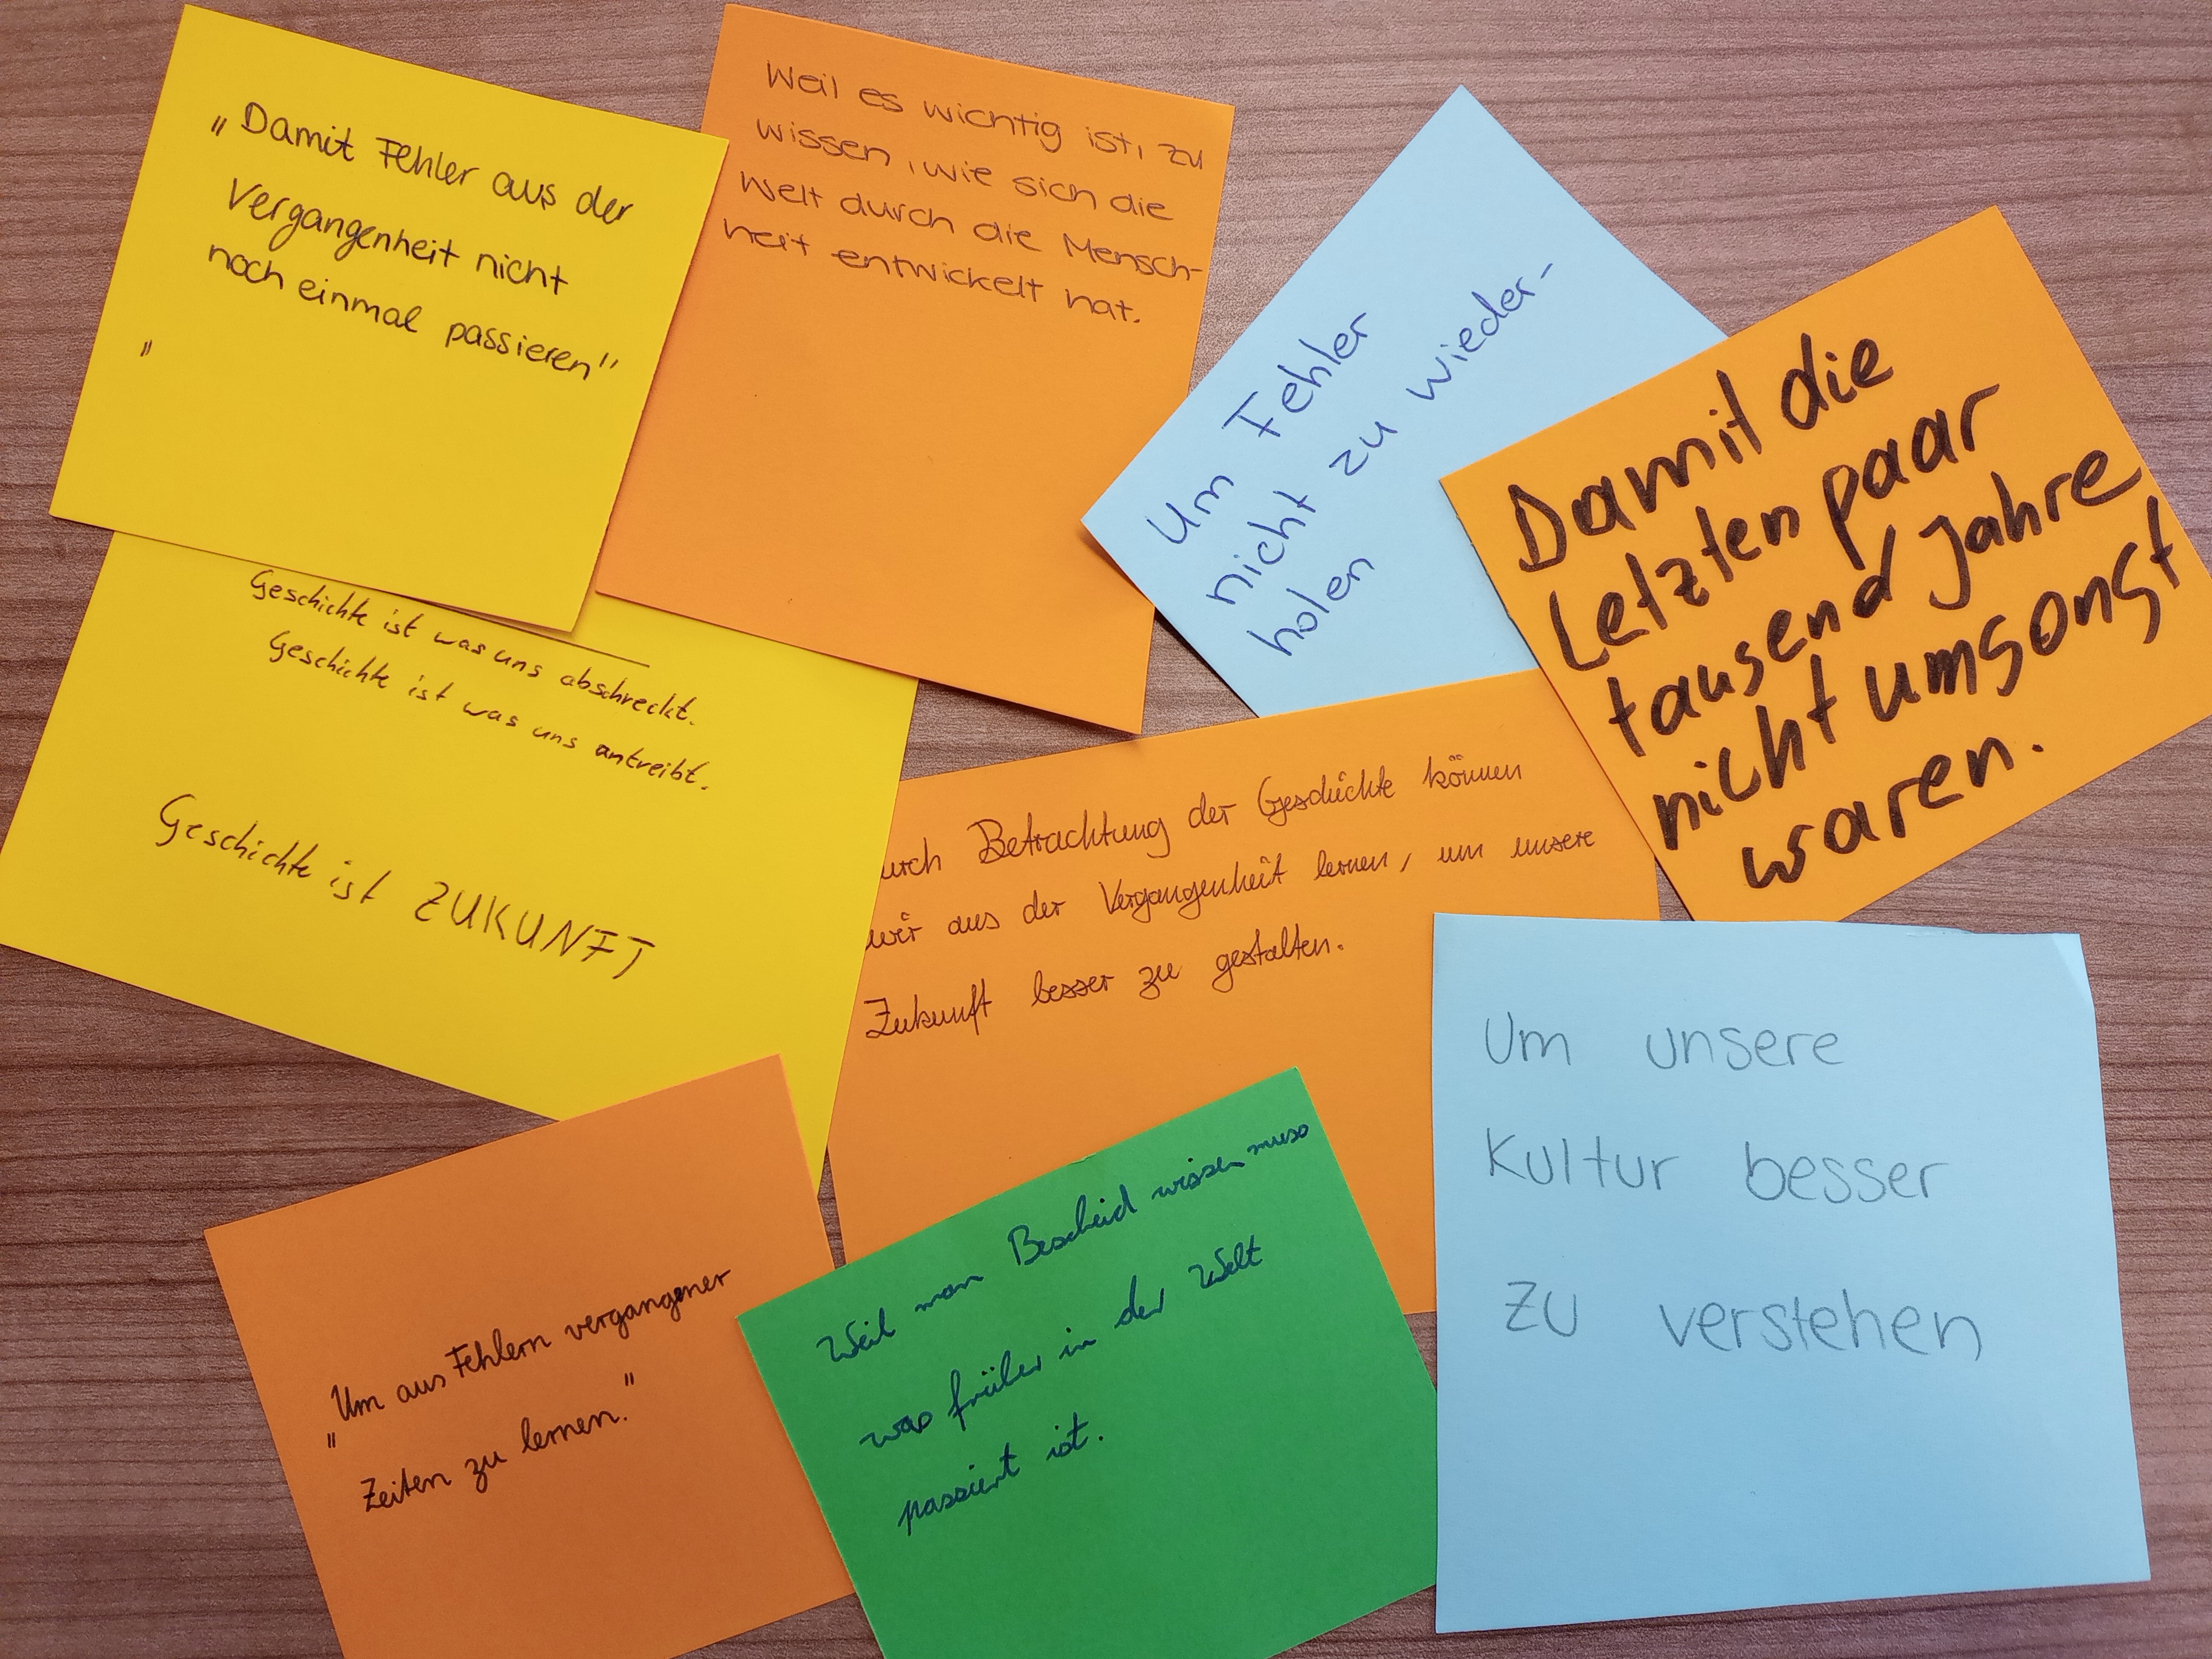 „Damit Fehler aus der
Vergangenheit nicht
noch einmal passieren"
"
Weil es wichtig ist, zu
wissen, wie sich die
Welt durch die Mensch-
heit entwickelt hat.
Um Fehler
nicht zu wieder-
holen
Damit die
Letzten paar
tausend Jahre
nicht umsonst
waren.
Geschichte ist was uns abschreckt.
Geschichte ist was uns antreibt.
Geschichte ist ZUKUNFT
urch Betrachtung der Geschichte können
wir aus der Vergangenheit lernen, um unsere
Zukunft besser zu gestalten.
Um unsere
Kultur besser
zu verstehen
„Um aus Fehlern vergangener
Zeiten zu lernen."
Weil man Bescheid wissen muss
was früher in der Welt
passiert ist.